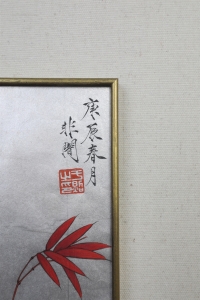 庚辰春月
非闇